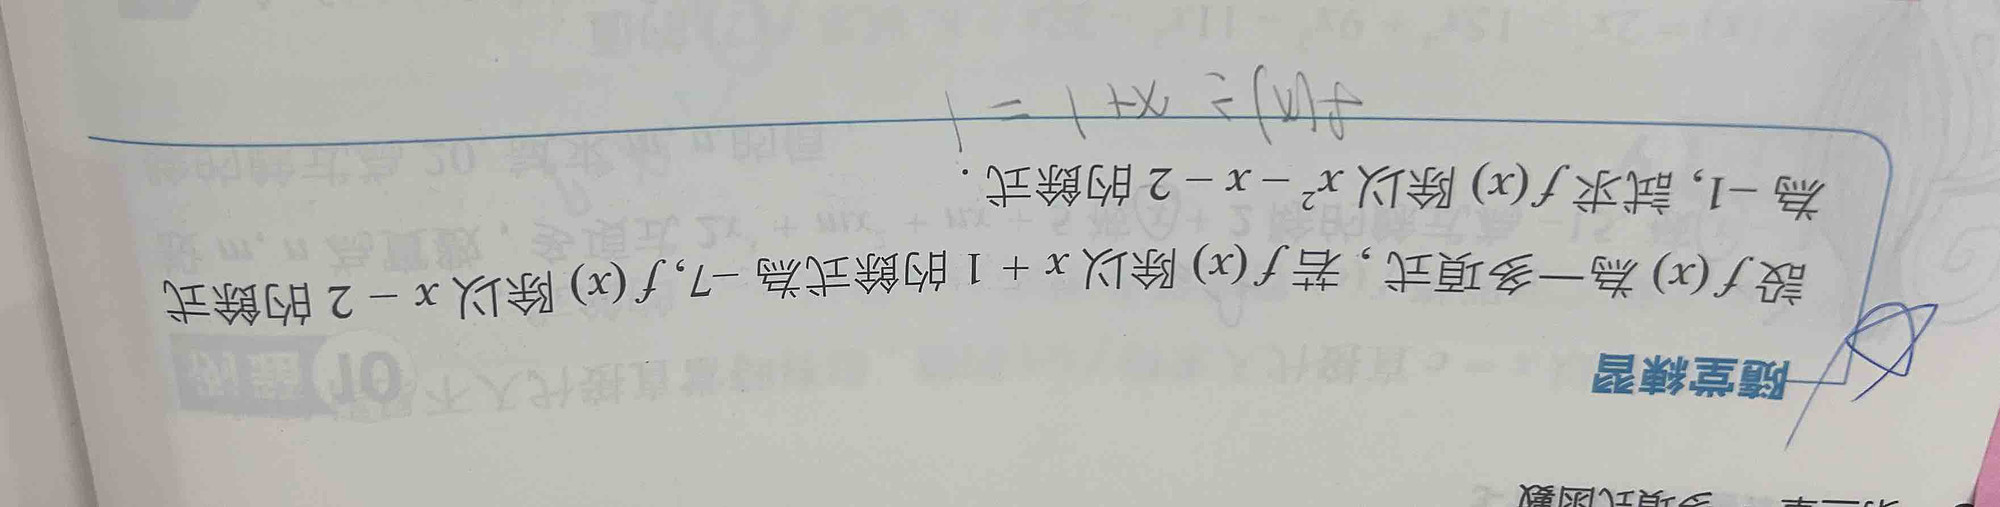 多項式函數
隨堂練習
設 f(x) 為一多項式，若 f(x) 除以 x + 1 的餘式為 −7, f(x) 除以 x − 2 的餘式
為 −1, 試求 f(x) 除以 x² − x − 2 的餘式．
f(x) = x+1 = 1